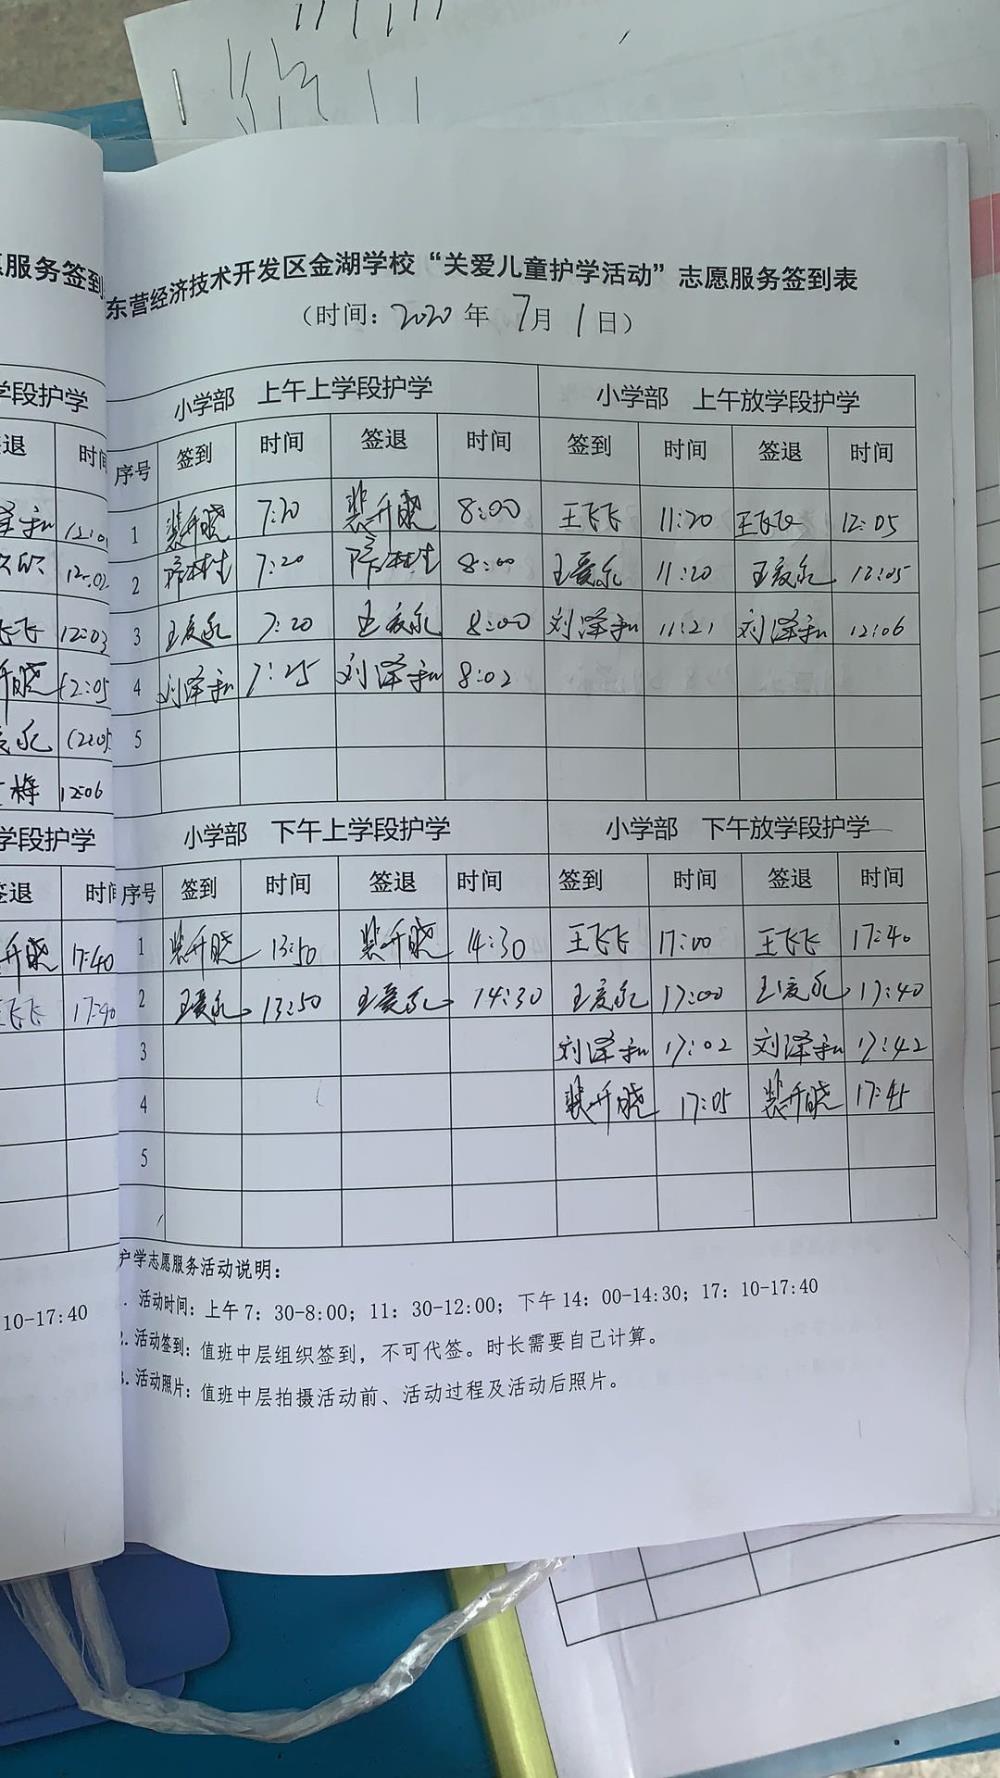 东营经济技术开发区金湖学校“关爱儿童护学活动”志愿服务签到表
（时间：2020年7月1日）
小学部 上午上学段护学 小学部 上午放学段护学
序号 签到 时间 签退 时间 签到 时间 签退 时间
1 裴升晓 7:20 裴升晓 8:00 王飞飞 11:20 王飞飞 12:05
2 7:20 8:00 王爱永 11:20 王爱永 12:05
3 王爱永 7:20 王爱永 8:00 刘泽和 11:21 刘泽和 12:06
4 刘泽和 7:25 刘泽和 8:02
5
小学部 下午上学段护学 小学部 下午放学段护学
序号 签到 时间 签退 时间 签到 时间 签退 时间
1 裴升晓 13:50 裴升晓 14:30 王飞飞 17:00 王飞飞 17:40
2 王爱永 13:50 王爱永 14:30 王爱永 17:00 王爱永 17:40
3 刘泽和 17:02 刘泽和 17:42
4 裴升晓 17:05 裴升晓 17:45
5
护学志愿服务活动说明：
. 活动时间：上午7：30-8:00；11：30-12:00；下午14：00-14:30；17：10-17:40
2. 活动签到：值班中层组织签到，不可代签。时长需要自己计算。
3. 活动照片：值班中层拍摄活动前、活动过程及活动后照片。
服务签到
学段护学
签退 时间
泽和 12:0
12:02
飞飞 12:03
升晓 12:05
爱永 12:05
梅 12:06
学段护学
签退 时间
升晓 17:40
王飞飞 17:40
10-17:40